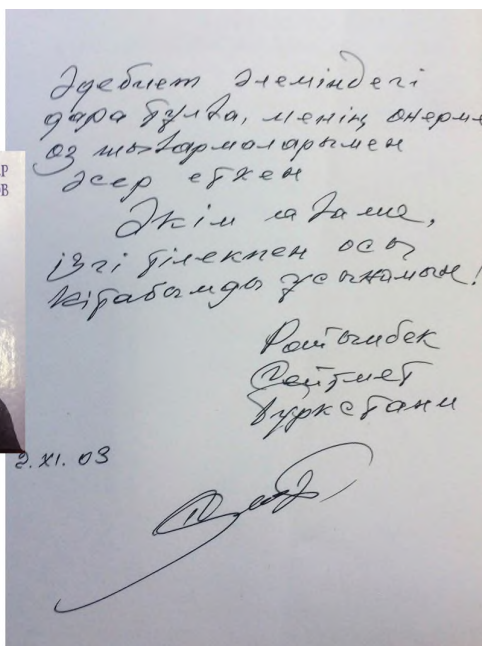 Әдебиет әлеміндегі
дара тұлға, менің өнерме
өз шығармаларымен
әсер еткен
Әкім ағама,
ізгі тілекпен осы
кітабымды ұсынамын!
Райымбек
Сейтмет
Түркстани
2.XI.03
Р
ОВ